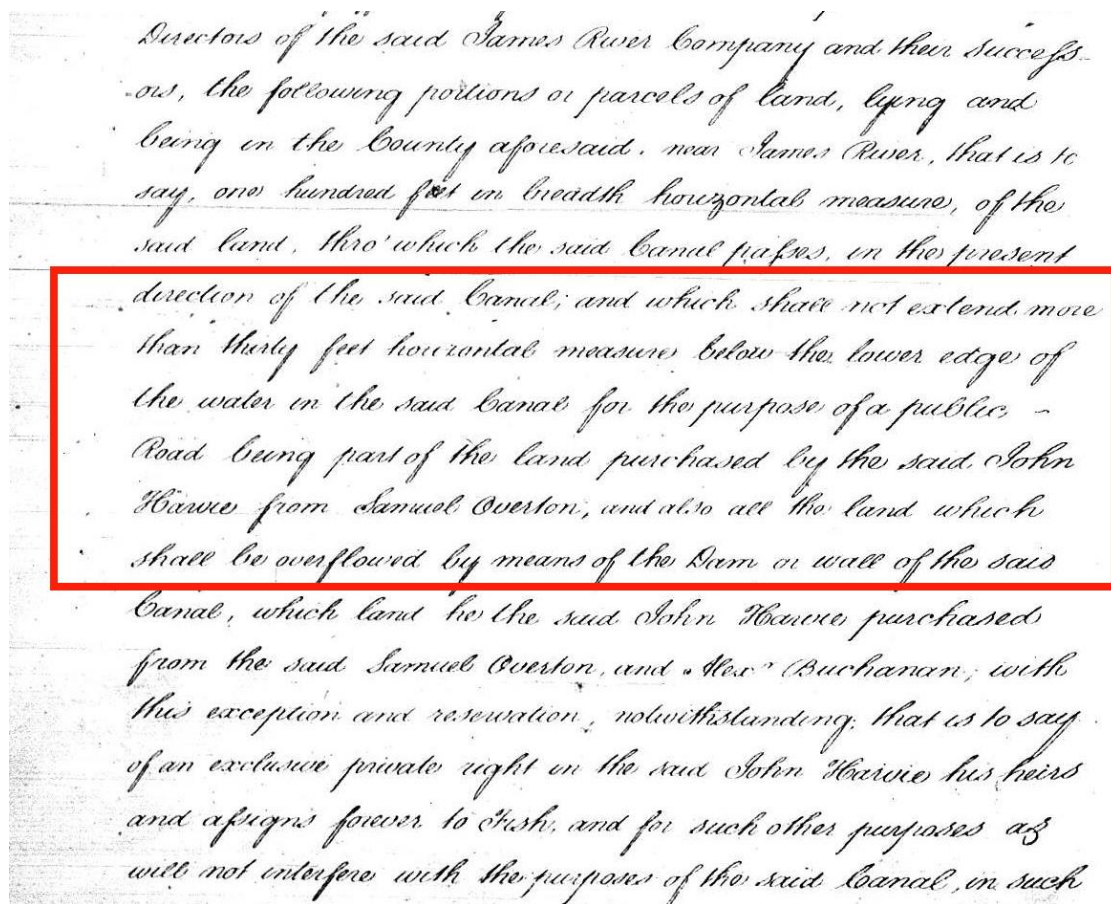 Directors of the said James River Company and their success-
-ors, the following portions or parcels of land, lying and
being in the County aforesaid, near James River, that is to
say, one hundred feet in breadth horizontal measure, of the
said land, thro' which the said Canal passes, in the present
direction of the said Canal; and which shall not extend more
than thirty feet horizontal measure below the lower edge of
the water in the said Canal for the purpose of a public -
Road being part of the land purchased by the said John
Harvie from Samuel Overton, and also all the land which
shall be overflowed by means of the Dam or wall of the said
Canal, which land he the said John Harvie purchased
from the said Samuel Overton, and Alexr Buchanan; with
this exception and reservation, notwithstanding; that is to say
of an exclusive private right in the said John Harvie his heirs
and assigns forever to Fish, and for such other purposes as
will not interfere with the purposes of the said Canal, in such